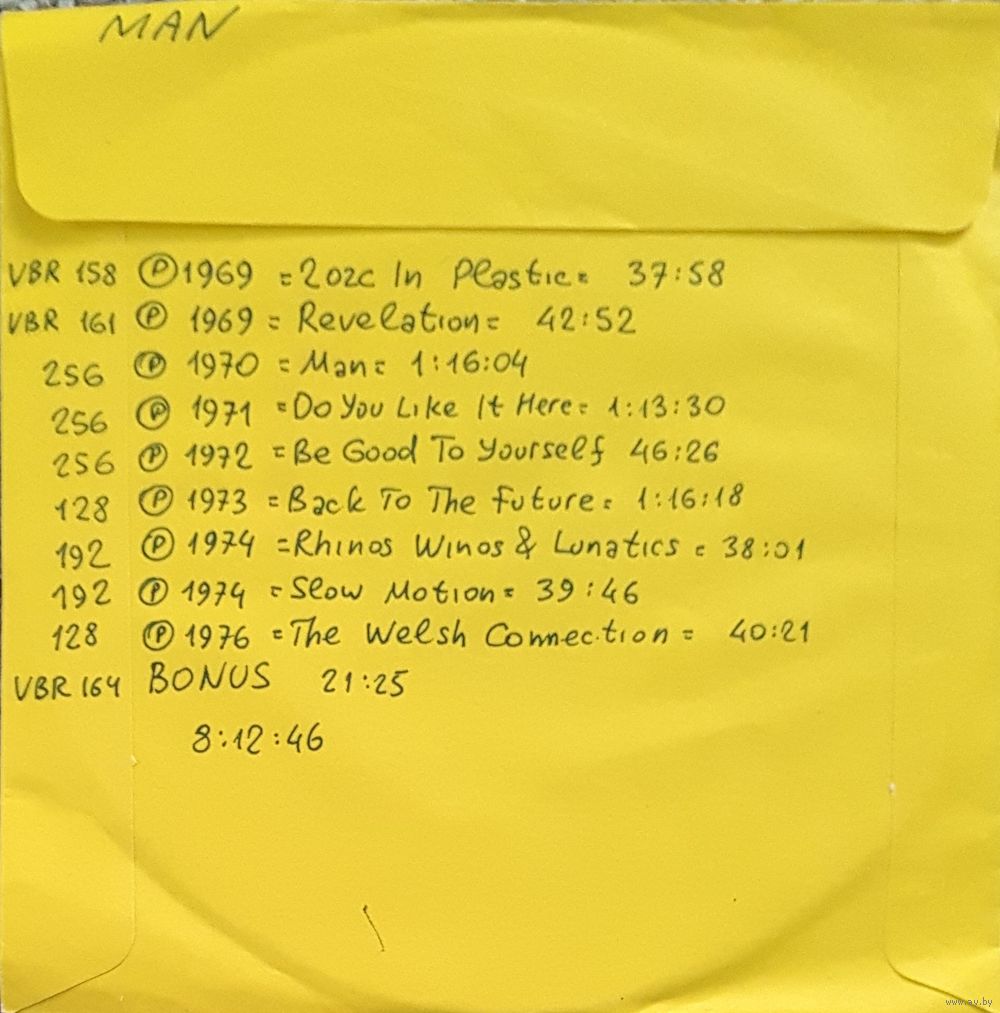 MAN
VBR 158 Ⓟ 1969 =2ozc In Plastic= 37:58
VBR 161 Ⓟ 1969 =Revelation= 42:52
256 Ⓟ 1970 =Man= 1:16:04
256 Ⓟ 1971 =Do You Like It Here= 1:13:30
256 Ⓟ 1972 =Be Good To Yourself 46:26
128 Ⓟ 1973 =Back To The Future= 1:16:18
192 Ⓟ 1974 =Rhinos Winos & Lunatics= 38:01
192 Ⓟ 1974 =Slow Motion= 39:46
128 Ⓟ 1976 =The Welsh Connection= 40:21
VBR 164 BONUS 21:25
8:12:46
www.av.by